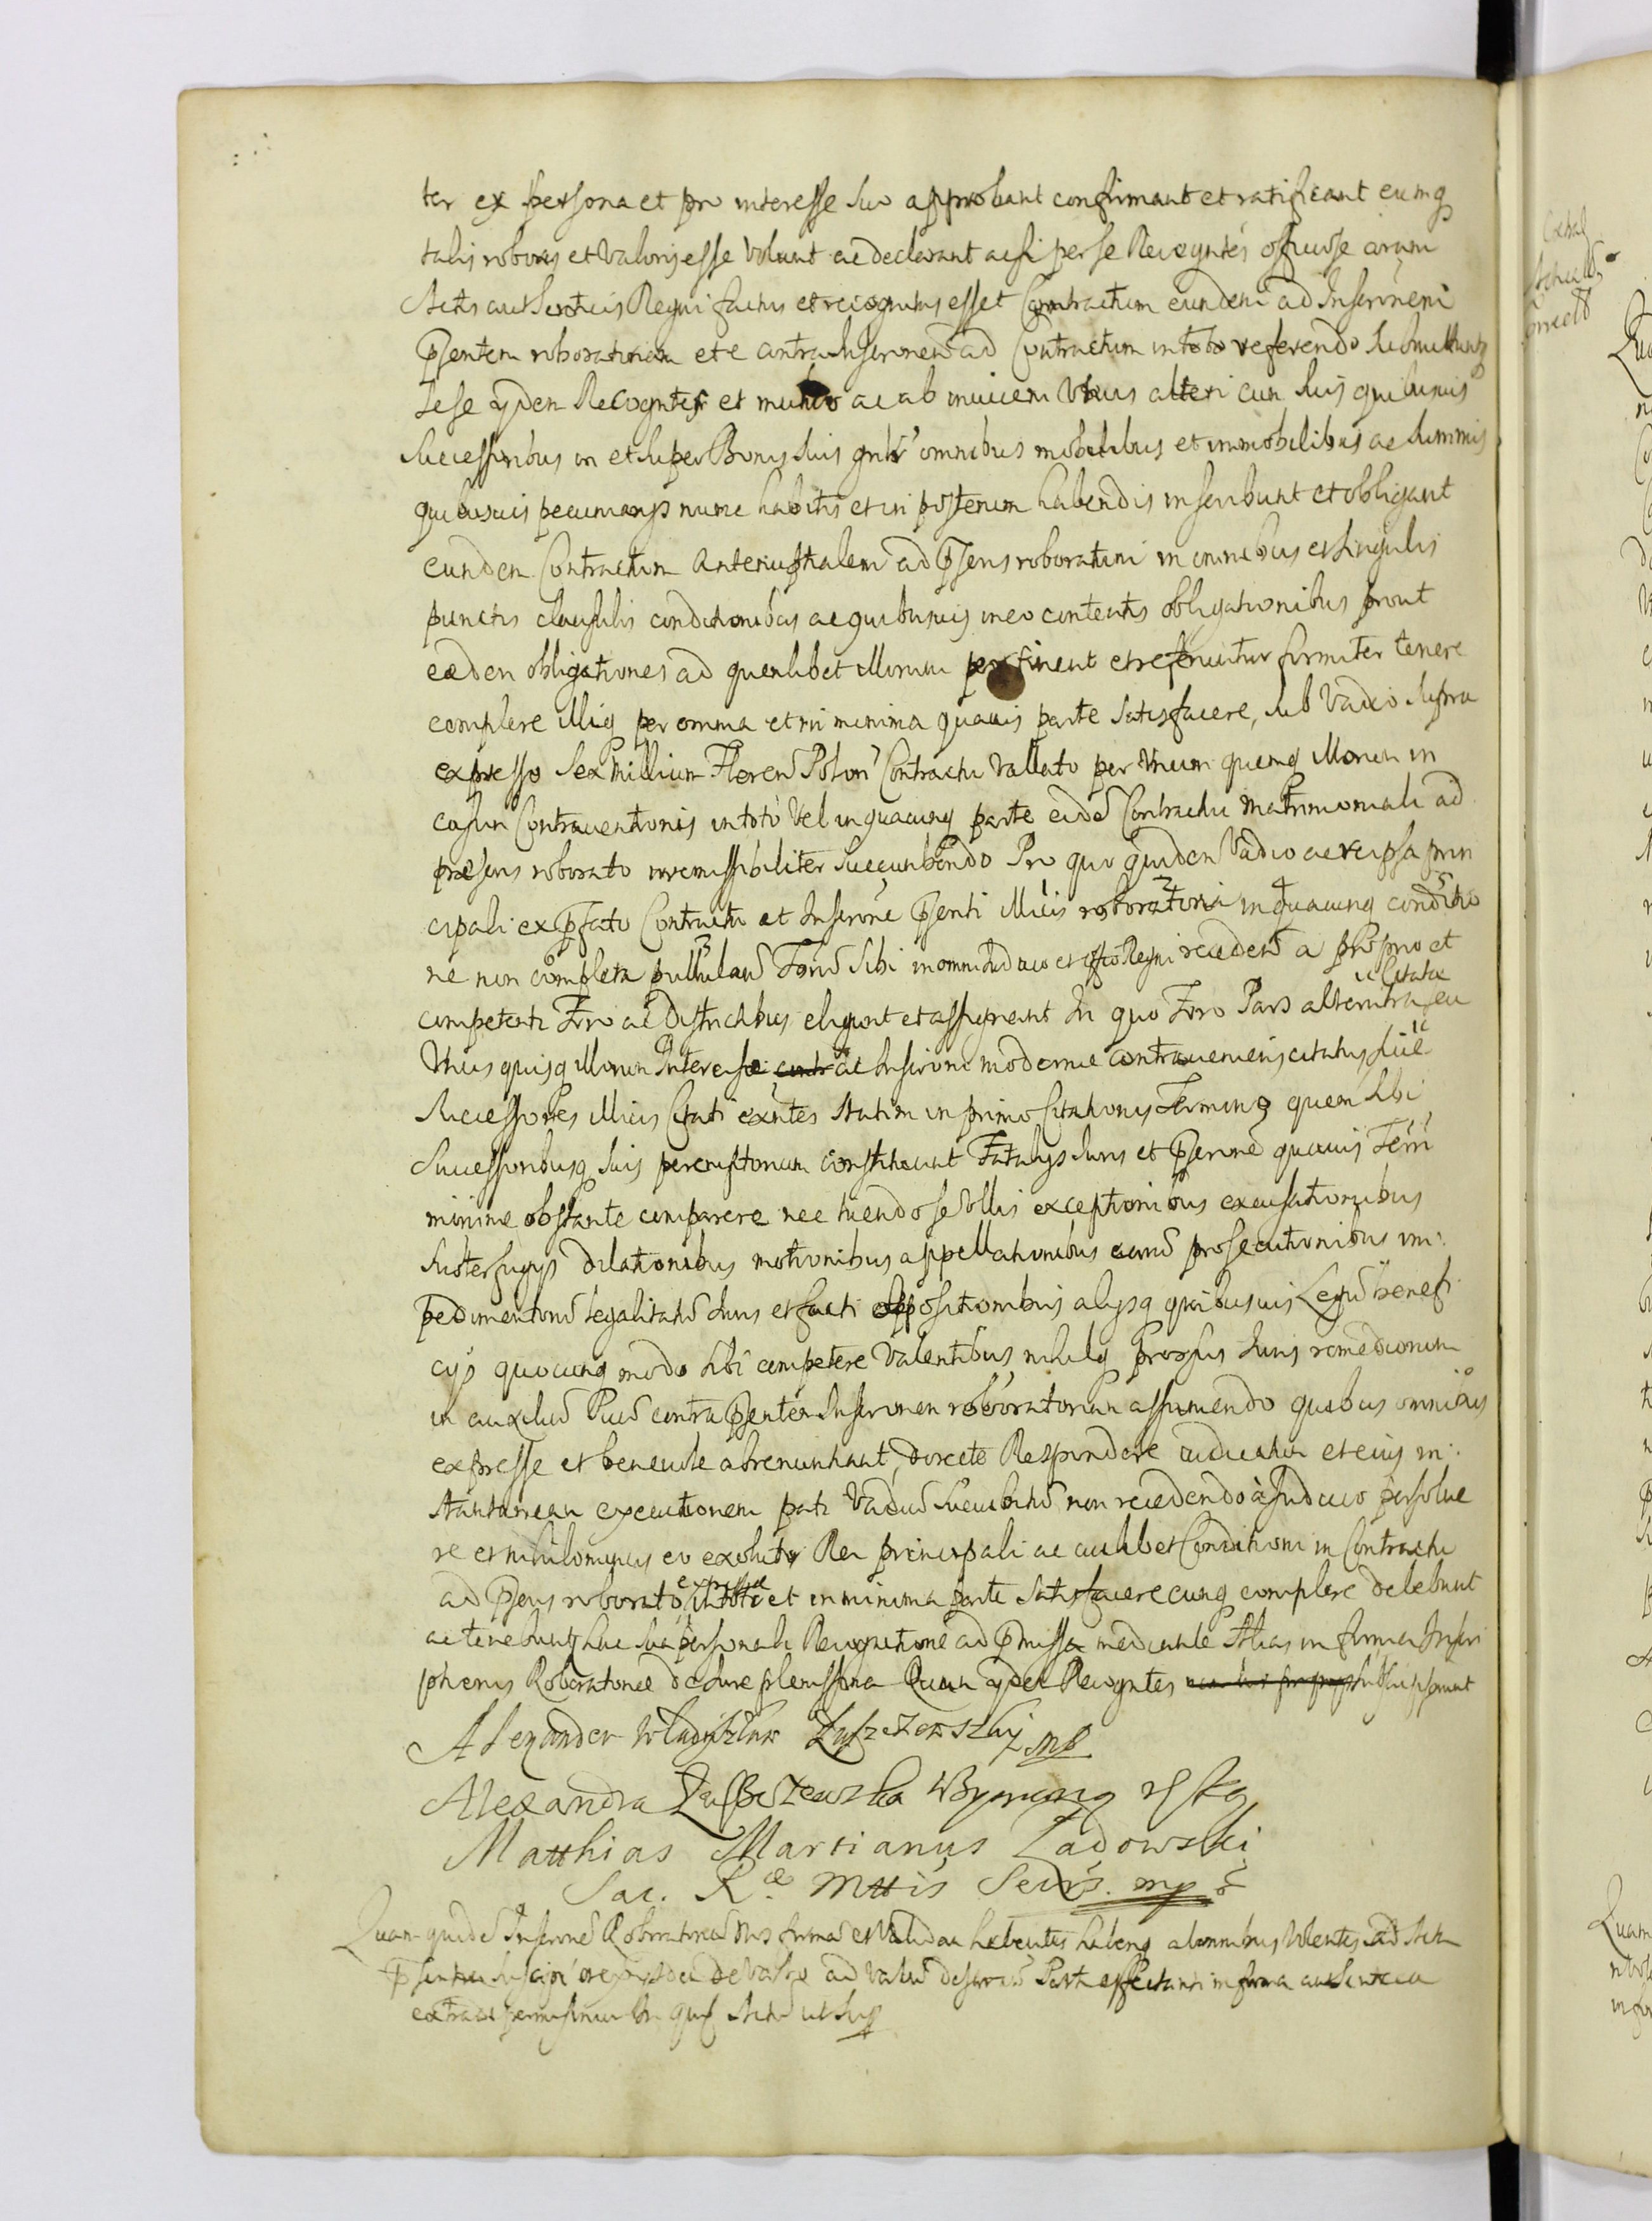 ter ex persona et pro interesse suo approbant confirmant et ratificant eumq
talis roboris et Valoris esse Volunt ac declarant acsi per se Recogntes officiose coram
Actis authenticis Regni factus et recognitus esset Contractum eundem ad Inscrionem
pſentem roboratoriam et e contra Inscrionem ad Contractum in toto referendo submittuntq
sese ijdem Recogntes et mutuo ac ab inuicem Vnus alteri cum suis quibusuis
Successoribus in et super Bonis suis gnlr omnibus mobilibus et immobilibus ac summis
quibusuis pecuniarijs nunc habitis et in posterum habendis inscribunt et obligant
eundem Contractum ad pſens roboratum in omnibus et singulis
punctis clausulis conditionibus ac quibusuis in eo contentis obligationibus prout
eædem obligationes ad quemlibet illorum pertinent et referuntur firmiter tenere
complere illiq per omnia et in minima quauis parte satisfacere, sub Vadio supra
expresso Sex Millium Floren Polon Contractu Vallato per Vnum quemq illorum in
casum Contrauentionis in toto Vel in quacunq parte eidem Contractui Matrimoniali ad
præsens roborato irremissibiliter succumbendo Pro quo quidem Vadio ac re ipsa prin
cipali ex pfato Contractu et Inscrione pſenti illius roboratoria in quacunq conditio
ne non completa pullulan Foru sibi in omni Iudicio et offo Regni receden a proprio et
competenti Foro ac Districtibus eligunt et assignant In quo Foro Pars alterutra citata eu
Vnus quisq illorum Interesse ac Inscrioni modernæ contraueniens citatus siue
Successores illius Citati exntes statim in primo Citationis Termino quem sibi
Successoribusq suis peremptorium constituunt Fatalijs Iuris et pſcrione quauis Terri
minime obstante comparere nec tuendo se Vllis exceptionibus excusationibus
Subterfugijs dilationibus motionibus appellationibus earu prosecutionibus im:
pedimentoru legalitatu Iuris et facti oppositionibus alijsq quibusuis Legu benefi
cijs quocunq modo sibi competere Valentibus, nihilq prorsus Iuris remediorum
in auxiliu suu contra pſentem Inscrionem roboratoriam assumendo quibus omnibus
expresse et beneuole abrenuntiant, directe Respondere iudicatu et eius in:
stantaneam executionem pati Vadiu succubitu non recedendo à Iudicio persolue
re et nihilominus eo exoluto Rei principali ac cuilibet Conditioni in Contractu
ad pſens roborato expressæ in toto et in minima parte satisfacere eunq complere debebunt
ac tenebuntq hac sua personali Recognitione ad pmissa mediante Salua in forma Inscri
ptionis Roboratoriæ de Iure plenissima Quam ijdem Recogntes subscripserunt
Alexander Wladysław mp
Alexandra
Matthias Martianus Ladowski
Sac. R.æ Mttis Secrs. mp
Quam quide Inscrione Roboratoria Nos firma et Validam habentes ab omnibus Volentes ad Acta
ad Parti affectanti in forma authentica